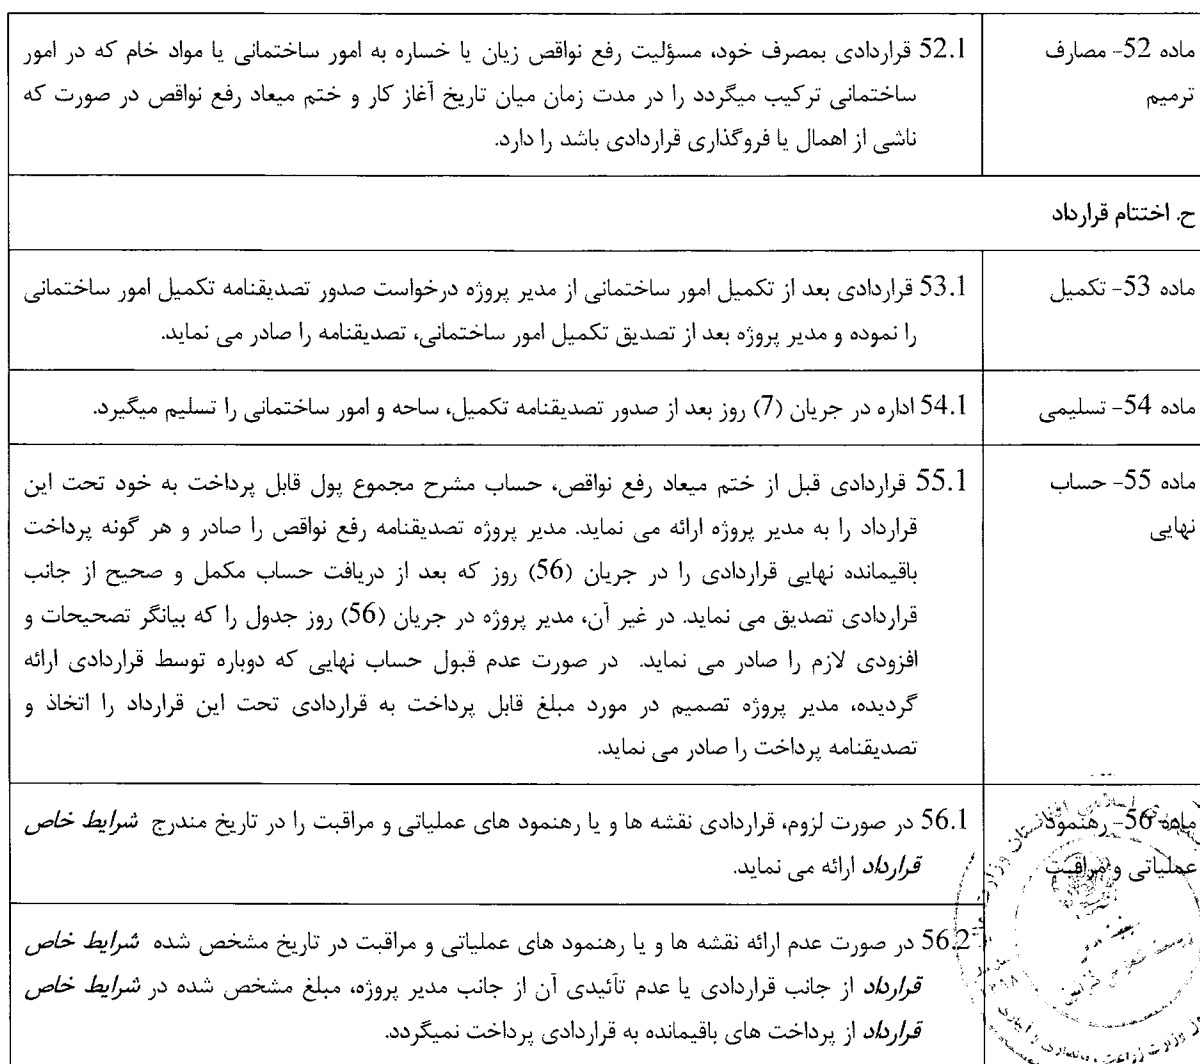 ماده 52- مصارف ترمیم
52.1 قراردادی بمصرف خود، مسؤلیت رفع نواقص زیان یا خساره به امور ساختمانی یا مواد خام که در امور
ساختمانی ترکیب میگردد را در مدت زمان میان تاریخ آغاز کار و ختم میعاد رفع نواقص در صورت که
ناشی از اهمال یا فروگذاری قراردادی باشد را دارد.
ح. اختتام قرارداد
ماده 53- تکمیل
53.1 قراردادی بعد از تکمیل امور ساختمانی از مدیر پروژه درخواست صدور تصدیقنامه تکمیل امور ساختمانی
را نموده و مدیر پروژه بعد از تصدیق تکمیل امور ساختمانی، تصدیقنامه را صادر می نماید.
ماده 54- تسلیمی
54.1 اداره در جریان (7) روز بعد از صدور تصدیقنامه تکمیل، ساحه و امور ساختمانی را تسلیم میگیرد.
ماده 55- حساب
نهایی
55.1 قراردادی قبل از ختم میعاد رفع نواقص، حساب مشرح مجموع پول قابل پرداخت به خود تحت این
قرارداد را به مدیر پروژه ارائه می نماید. مدیر پروژه تصدیقنامه رفع نواقص را صادر و هر گونه پرداخت
باقیمانده نهایی قراردادی را در جریان (56) روز که بعد از دریافت حساب مکمل و صحیح از جانب
قراردادی تصدیق می نماید. در غیر آن، مدیر پروژه در جریان (56) روز جدول را که بیانگر تصحیحات و
افزودی لازم را صادر می نماید. در صورت عدم قبول حساب نهایی که دوباره توسط قراردادی ارائه
گردیده، مدیر پروژه تصمیم در مورد مبلغ قابل پرداخت به قراردادی تحت این قرارداد را اتخاذ و
تصدیقنامه پرداخت را صادر می نماید.
ماده 56- رهنمود
عملیاتی و مراقبت
56.1 در صورت لزوم، قراردادی نقشه ها و یا رهنمود های عملیاتی و مراقبت را در تاریخ مندرج شرایط خاص
قرارداد ارائه می نماید.
56.2 در صورت عدم ارائه نقشه ها و یا رهنمود های عملیاتی و مراقبت در تاریخ مشخص شده شرایط خاص
قرارداد از جانب قراردادی یا عدم تآئیدی آن از جانب مدیر پروژه، مبلغ مشخص شده در شرایط خاص
قرارداد از پرداخت های باقیمانده به قراردادی پرداخت نمیگردد.